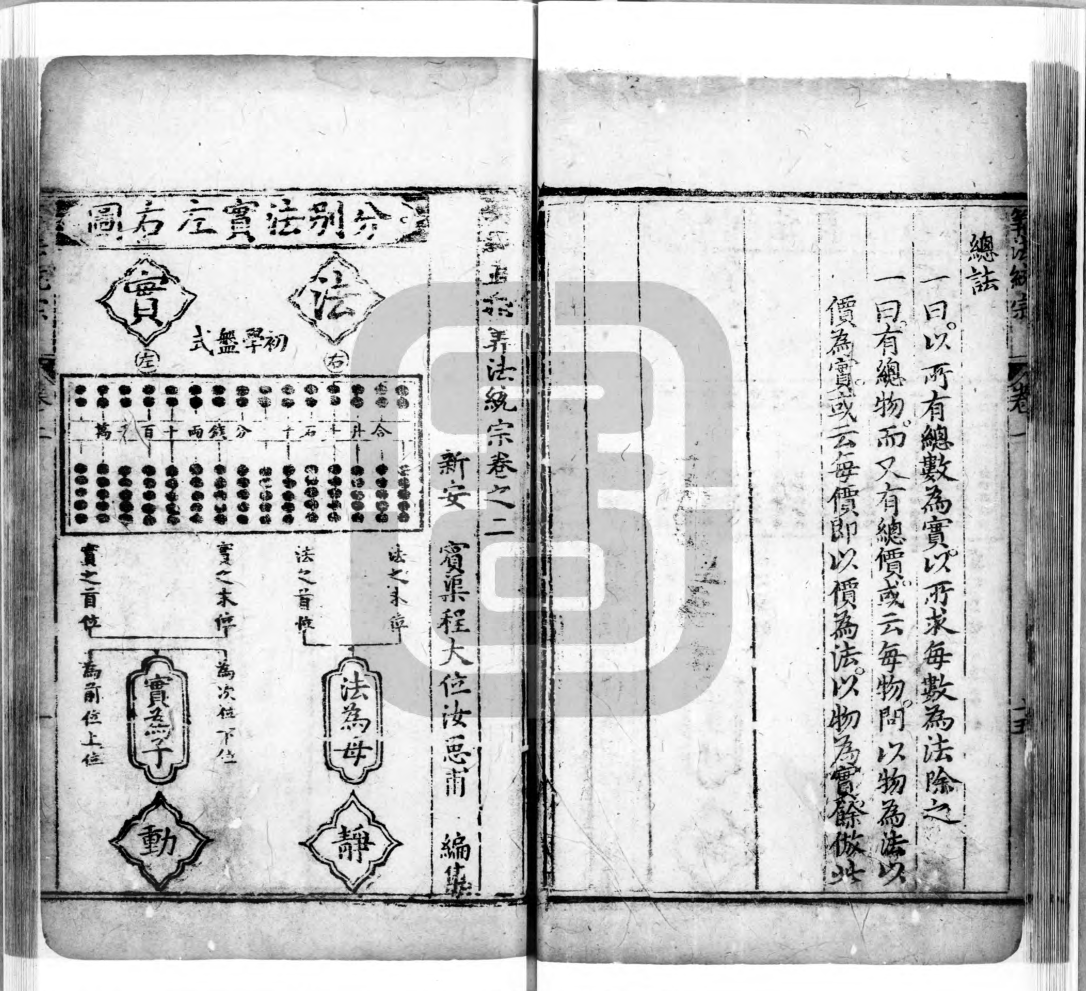 算法統宗 卷一 十五
總註
一曰以所有總數為實以所求每數為法除之
一曰有總物而又有總價或云每物問以物為法以
價為實或云每價即以價為法以物為實餘倣此
算法統宗卷之二
新安 賓渠程大位汝思甫 編集
分別法實左右圖
法
實
初學盤式
右
左
合 斗 石 十 分 錢 兩 十 百 千 萬
法之末位
法之首位
實之末位
實之首位
法為母
為次位下位
實為子
為前位上位
靜
動